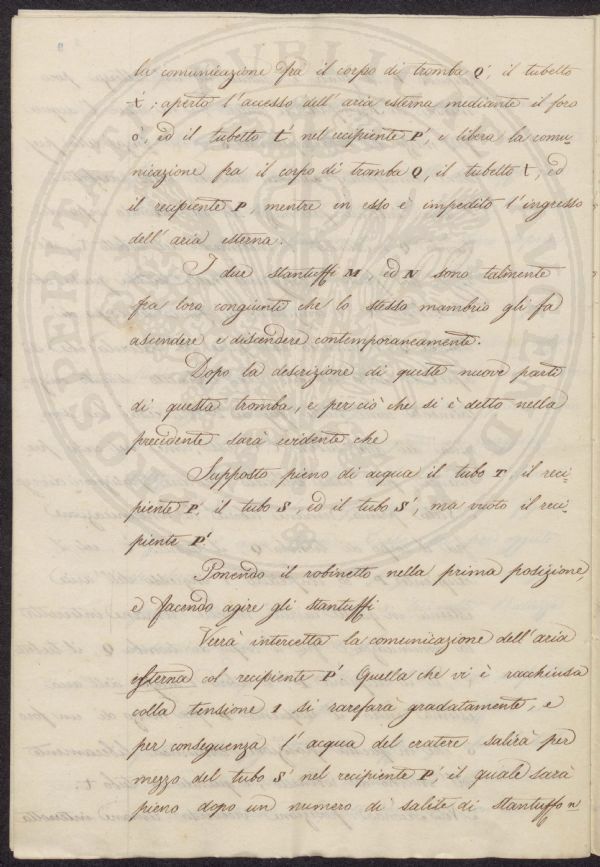 la comunicazione frà il corpo di tromba Q', il tubetto
t': aperto l'accesso dell'aria esterna mediante il foro
o', ed il tubetto t' nel recipiente P', e libera la comu-
nicazione fra il corpo di tromba Q, il tubetto t, ed
il recipiente P, mentre in esso è impedito l'ingresso
dell'aria esterna.
I due stantuffi M, ed N sono talmente
fra loro congiunti che lo stesso mambrio gli fa
ascendere e discendere contemporaneamente.
Dopo la descrizione di queste nuove parti
di questa tromba, e per ciò che si è detto nella
precedente sarà evidente che
Supposto pieno di acqua il tubo T, il reci-
piente P, il tubo S, ed il tubo S', ma vuoto il reci-
piente P'
Ponendo il robinetto nella prima posizione,
e facendo agire gli stantuffi
Verrà intercetta la comunicazione dell'aria
esterna col recipiente P'. Quella che vi è racchiusa
colla tensione 1 si rarefarà gradatamente, e
per conseguenza l'acqua del cratere salirà per
mezzo del tubo S' nel recipiente P', il quale sarà
pieno dopo un numero di salite di stantuffo n